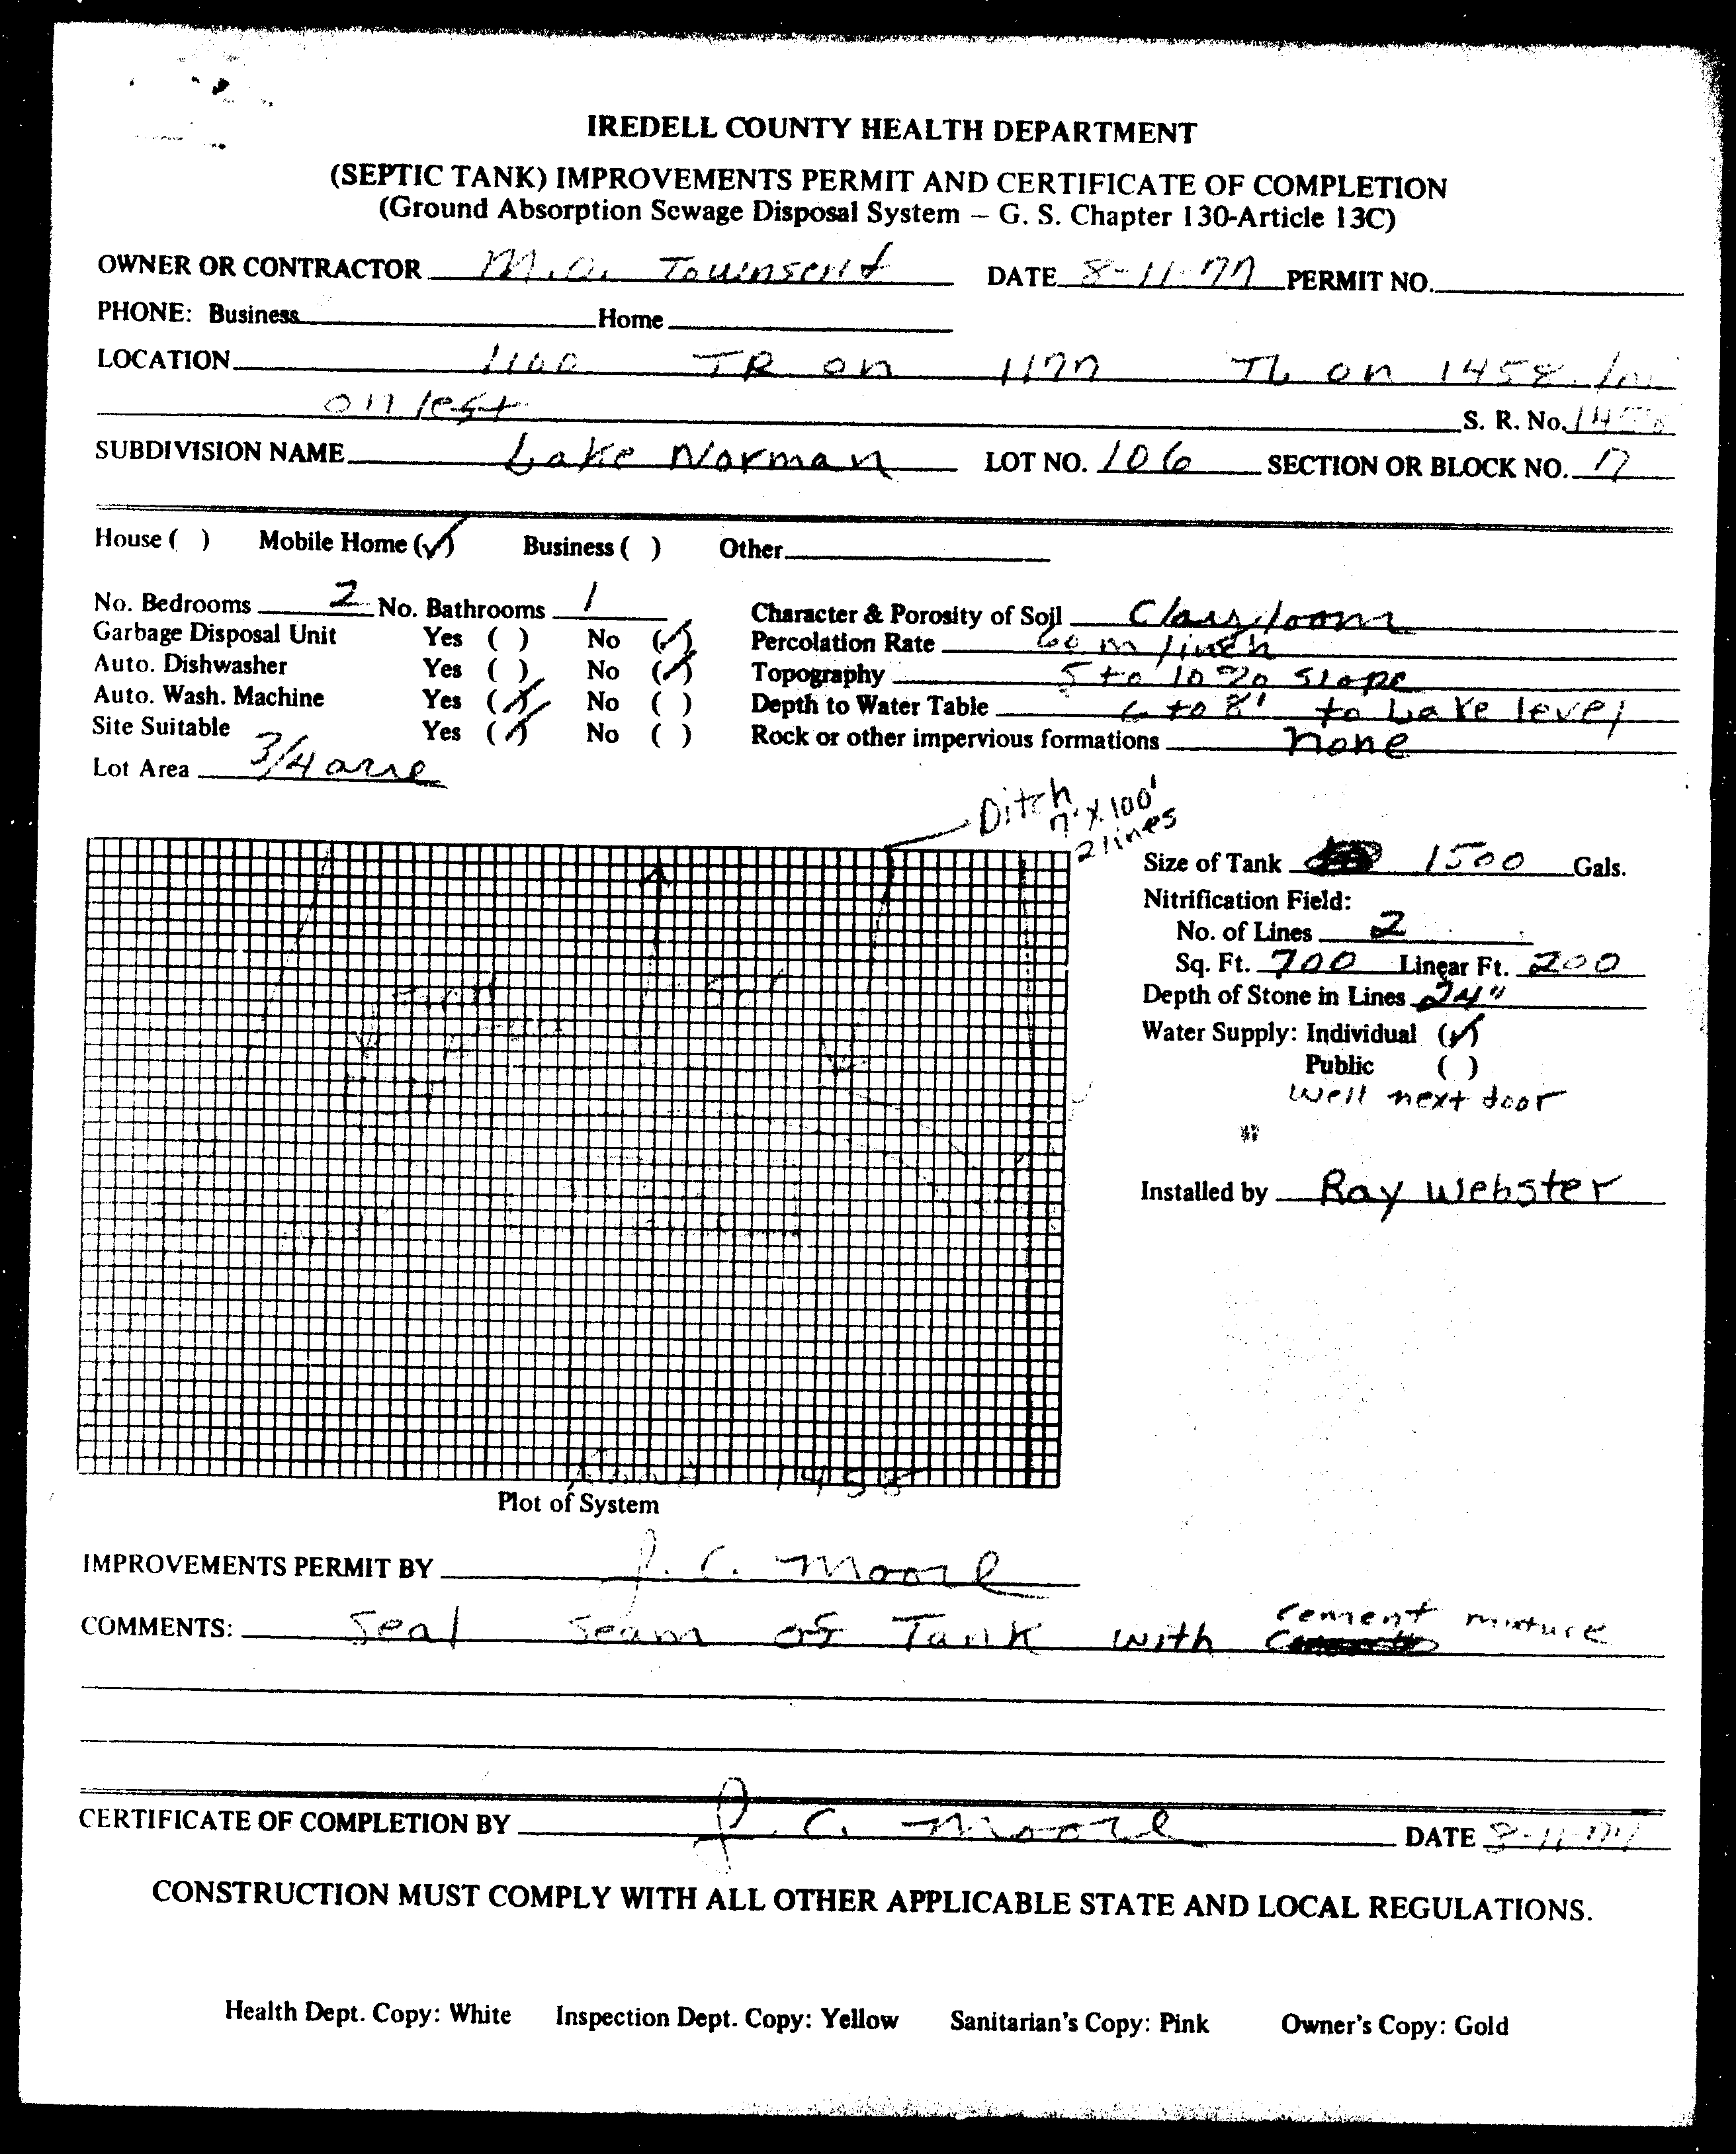 IREDELL COUNTY HEALTH DEPARTMENT
(SEPTIC TANK) IMPROVEMENTS PERMIT AND CERTIFICATE OF COMPLETION
(Ground Absorption Sewage Disposal System – G. S. Chapter 130-Article 13C)
OWNER OR CONTRACTOR M.O. Townsend DATE 8-11-77 PERMIT NO.
PHONE: Business Home
LOCATION 1100 TR on 1177 TL on 1458
on left S. R. No. 1458
SUBDIVISION NAME Lake Norman LOT NO. 106 SECTION OR BLOCK NO. 7
House ( ) Mobile Home (✓) Business ( ) Other
No. Bedrooms 2 No. Bathrooms 1 Character & Porosity of Soil Clay loam
Garbage Disposal Unit Yes ( ) No (✓) Percolation Rate 60 m/inch
Auto. Dishwasher Yes ( ) No (✓) Topography 5 to 10% slope
Auto. Wash. Machine Yes (✓) No ( ) Depth to Water Table 6 to 8' to Lake level
Site Suitable Yes (✓) No ( ) Rock or other impervious formations none
Lot Area 3/4 acre
Ditch
7' X 100'
2 lines
Size of Tank 1500 Gals.
Nitrification Field:
No. of Lines 2
Sq. Ft. 700 Linear Ft. 200
Depth of Stone in Lines 24"
Water Supply: Individual (✓)
Public ( )
Well next door
Installed by Ray Webster
Road 1458
Plot of System
IMPROVEMENTS PERMIT BY J. C. Moore
COMMENTS: Seal seam of Tank with cement mixture
CERTIFICATE OF COMPLETION BY J. C. Moore DATE 8-11-77
CONSTRUCTION MUST COMPLY WITH ALL OTHER APPLICABLE STATE AND LOCAL REGULATIONS.
Health Dept. Copy: White Inspection Dept. Copy: Yellow Sanitarian's Copy: Pink Owner's Copy: Gold